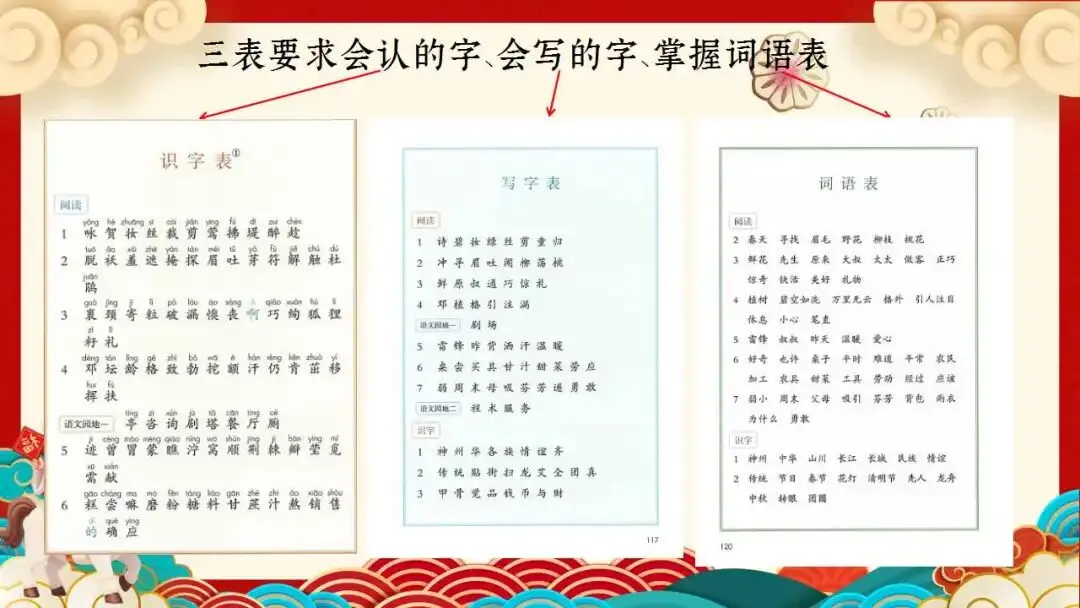 三表要求会认的字、会写的字、掌握词语表
识字表①
阅读
yǒng hè zhuāng sī cái jiǎn yīng fú dī zuì chèn
1 咏 贺 妆 丝 裁 剪 莺 拂 堤 醉 趁
2 脱 袄 羞 遮 掩 探 眉 吐 芽 符 解 触 杜
juān
鹃
3 裹 颈 寄 粒 破 漏 懊 丧 啊 巧 绚 狐 狸
zǐ lǐ
籽 礼
4 邓 坛 龄 格 致 勃 挖 额 汗 仍 肯 茁 移
huī fú
挥 扶
tíng zī xún jù tǎ cān tīng cè
语文园地一 亭 咨 询 剧 塔 餐 厅 厕
5 迹 曾 冒 蒙 瞧 泞 窝 顺 荆 棘 瓣 莹 觅
xū xiàn
需 献
6 糕 尝 嘛 磨 粉 糖 料 甘 蔗 汁 熬 销 售
dí què yīng
的 确 应
写字表
阅读
1 诗 碧 妆 绿 丝 剪 童 归
2 冲 寻 眉 吐 闹 柳 荡 桃
3 鲜 原 叔 通 巧 惊 礼
4 邓 植 格 引 注 满
语文园地一 剧 场
5 雷 锋 昨 背 洒 汗 温 暖
6 桌 尝 买 具 甘 汁 甜 菜 劳 应
7 弱 周 末 母 吸 芬 芳 递 勇 敢
语文园地二 程 术 服 务
识字
1 神 州 华 各 族 情 谊 齐
2 传 统 贴 街 扫 龙 艾 全 团 真
3 甲 骨 觉 品 钱 币 与 财
117
词语表
阅读
2 春天 寻找 眉毛 野花 柳枝 桃花
3 鲜花 先生 原来 大叔 太太 做客 正巧
惊奇 快活 美好 礼物
4 植树 碧空如洗 万里无云 格外 引人注目
休息 小心 笔直
5 雷锋 叔叔 昨天 温暖 爱心
6 好奇 也许 桌子 平时 难道 平常 农民
加工 农具 甜菜 工具 劳动 经过 应该
7 弱小 周末 父母 吸引 芬芳 背包 雨衣
为什么 勇敢
识字
1 神州 中华 山川 长江 长城 民族 情谊
2 传统 节日 春节 花灯 清明节 先人 龙舟
中秋 转眼 团圆
120